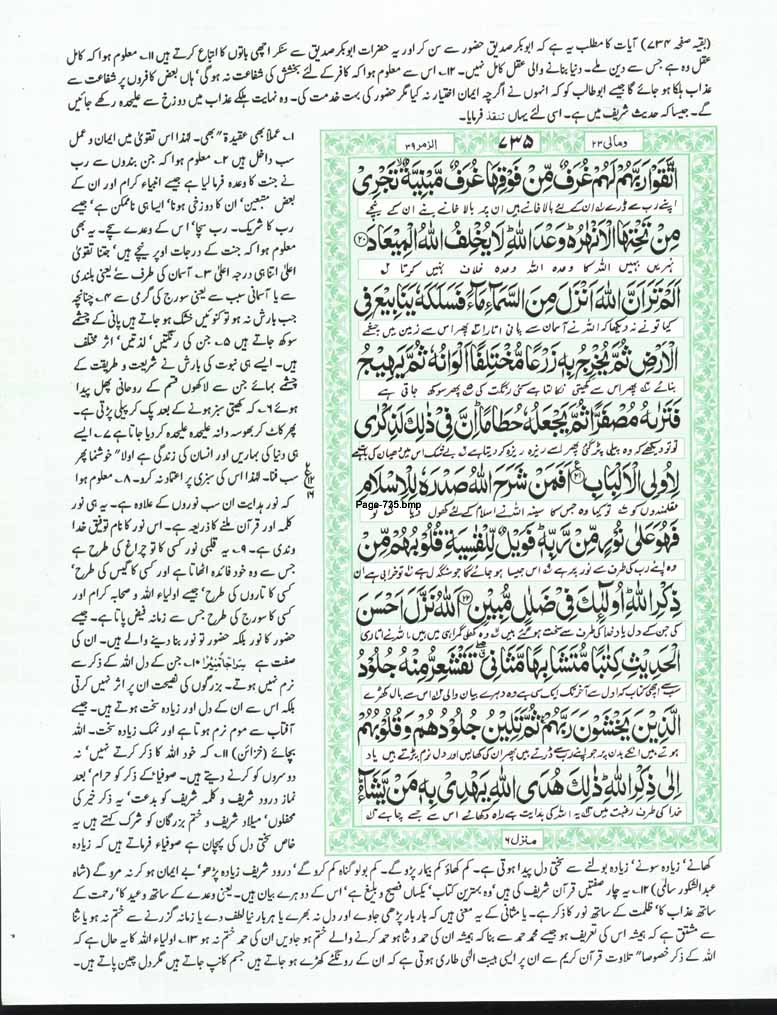 (بقیہ صفحہ ۷۳۴) آیات کا مطلب یہ ہے کہ ابوبکر صدیق حضور سے سن کر اور یہ حضرات ابوبکر صدیق سے سنکر اچھی باتوں کا اتباع کرتے ہیں ۱۱۔ معلوم ہوا کہ کامل
عقل وہ ہے جس سے دین ملے۔ دنیا بنانے والی عقل کامل نہیں۔ ۱۲۔ اس سے معلوم ہوا کہ کافر کے لئے بخشش کی شفاعت نہ ہو گی' ہاں بعض کافروں پر شفاعت سے
عذاب ہلکا ہو جائے گا جیسے ابوطالب کو کہ انہوں نے اگرچہ ایمان اختیار نہ کیا مگر حضور کی بہت خدمت کی۔ وہ نہایت ہلکے عذاب میں دوزخ سے علیحدہ رکھے جائیں
گے۔ جیسا کہ حدیث شریف میں ہے۔ اسی لئے یہاں تنقذ فرمایا۔
ومالی ۲۳
۷۳۵
الزمر ۳۹
اتَّقَوْا رَبَّهُمْ لَهُمْ غُرَفٌ مِّنْ فَوْقِهَا غُرَفٌ مَّبْنِيَّةٌ تَجْرِي
اپنے رب سے ڈرے ان کے لئے بالا خانے ہیں ان پر بالا خانے بنے ان کے نیچے
مِنْ تَحْتِهَا الْأَنْهٰرُ وَعْدَ اللّٰهِ لَا يُخْلِفُ اللّٰهُ الْمِيعَادَ ۲۰
نہریں بہیں اللہ کا وعدہ اللہ وعدہ خلاف نہیں کرتا
اَلَمْ تَرَ اَنَّ اللّٰهَ اَنْزَلَ مِنَ السَّمَآءِ مَآءً فَسَلَكَهٗ يَنَابِيعَ فِي
کیا تو نے نہ دیکھا کہ اللہ نے آسمان سے پانی اتارا پھر اس سے زمین میں چشمے
الْاَرْضِ ثُمَّ يُخْرِجُ بِهٖ زَرْعًا مُّخْتَلِفًا اَلْوَانُهٗ ثُمَّ يَهِيجُ
بنائے پھر اس سے کھیتی نکالتا ہے کئی رنگت کی پھر سوکھ جاتی ہے
فَتَرٰىهُ مُصْفَرًّا ثُمَّ يَجْعَلُهٗ حُطَامًا اِنَّ فِي ذٰلِكَ لَذِكْرٰى
تو تو دیکھے کہ وہ پیلی پڑ گئی پھر اسے ریزہ ریزہ کر دیتا ہے بے شک اس میں دھیان کی بات ہے
لِاُولِي الْاَلْبَابِ ۲۱ اَفَمَنْ شَرَحَ اللّٰهُ صَدْرَهٗ لِلْاِسْلَامِ
عقلمندوں کو تو کیا وہ جس کا سینہ اللہ نے اسلام کے لئے کھول دیا تو
Page-735.bmp
فَهُوَ عَلٰى نُوْرٍ مِّنْ رَّبِّهٖ فَوَيْلٌ لِّلْقٰسِيَةِ قُلُوْبُهُمْ مِّنْ
وہ اپنے رب کی طرف سے نور پر ہے اس جیسا ہو جائے گا جو سنگدل ہے تو خرابی ہے ان
ذِكْرِ اللّٰهِ اُولٰٓئِكَ فِي ضَلٰلٍ مُّبِيْنٍ ۲۲ اَللّٰهُ نَزَّلَ اَحْسَنَ
کی جن کے دل یاد خدا کی طرف سے سخت ہو گئے ہیں وہ کھلی گمراہی میں ہیں اللہ نے اتاری
الْحَدِيْثِ كِتٰبًا مُّتَشَابِهًا مَّثَانِيَ تَقْشَعِرُّ مِنْهُ جُلُوْدُ
سب سے اچھی کتاب کہ اول سے آخر تک ایک سی ہے دوہرے بیان والی اس سے بال کھڑے
الَّذِيْنَ يَخْشَوْنَ رَبَّهُمْ ثُمَّ تَلِيْنُ جُلُوْدُهُمْ وَقُلُوْبُهُمْ
ہوتے ہیں انکے بدن پر جو اپنے رب سے ڈرتے ہیں پھر ان کی کھالیں اور دل نرم پڑتے ہیں یاد
اِلٰى ذِكْرِ اللّٰهِ ذٰلِكَ هُدَى اللّٰهِ يَهْدِيْ بِهٖ مَنْ يَّشَآءُ
خدا کی طرف رغبت میں یہ اللہ کی ہدایت ہے راہ دکھائے اس سے جسے چاہے
منزل ۶
۱۔ عملاً بھی عقیدۃً بھی۔ لہٰذا اس تقویٰ میں ایمان و عمل
سب داخل ہیں ۲۔ معلوم ہوا کہ جن بندوں سے رب
نے جنت کا وعدہ فرما لیا ہے جیسے انبیاء کرام اور ان کے
بعض متبعین' ان کا دوزخی ہونا' ایسا ہی ناممکن ہے' جیسے
رب کا شریک۔ رب سچا' اس کے وعدے سچے۔ یہ بھی
معلوم ہوا کہ جنت کے درجات اوپر نیچے ہیں' جتنا تقویٰ
اعلیٰ اتنا ہی درجہ اعلیٰ ۳۔ آسمان کی طرف سے یعنی بلندی
سے یا آسمانی سبب سے یعنی سورج کی گرمی سے ۴۔ چنانچہ
جب بارش نہ ہو تو کنوئیں خشک ہو جاتے ہیں پانی کے چشمے
سوکھ جاتے ہیں ۵۔ جن کی رنگتیں' لذتیں' اثر مختلف
ہیں۔ ایسے ہی نبوت کی بارش نے شریعت و طریقت کے
چشمے بہائے جن سے لاکھوں قسم کے روحانی پھل پیدا
ہوئے ۶۔ کہ کھیتی سبز ہونے کے بعد پک کر پیلی پڑتی ہے۔
پھر کاٹ کر بھوسہ دانہ علیحدہ علیحدہ کر دیا جاتا ہے ۷۔ ایسے
ہی دنیا کی بہاریں اور انسان کی زندگی ہے اولاً خوشنما پھر
سب فنا۔ لہٰذا اس کی سبزی پر اعتماد نہ کرو۔ ۸۔ معلوم ہوا
کہ نور ہدایت ان سب نوروں کے علاوہ ہے۔ یہ ہی نور
کلمہ اور قرآن ملنے کا ذریعہ ہے۔ اس نور کا نام توفیق خدا
وندی ہے۔ ۹۔ یہ قلبی نور کسی کا تو چراغ کی طرح ہے
جس سے وہ خود فائدہ اٹھاتا ہے اور کسی کا گیس کی طرح'
کسی کا تاروں کی طرح' جیسے اولیاء اللہ و صحابہ کرام اور
کسی کا سورج کی طرح جس سے زمانہ فیض پاتا ہے۔ جیسے
حضور کا نور بلکہ حضور تو نور بنا دینے والے ہیں۔ ان کی
صفت ہے سِرَاجًا مُّنِيْرًا ۱۰۔ جن کے دل اللہ کے ذکر سے
نرم نہیں ہوتے۔ بزرگوں کی نصیحت ان پر اثر نہیں کرتی
بلکہ اس سے ان کے دل اور زیادہ سخت ہوتے ہیں۔ جیسے
آفتاب سے موم نرم ہوتا ہے اور نمک زیادہ سخت۔ اللہ
بچائے (خزائن) ۱۱۔ کہ خود اللہ کا ذکر کرتے نہیں' نہ
دوسروں کو کرنے دیتے ہیں۔ صوفیاء کے ذکر کو حرام' بعد
نماز درود شریف و کلمہ شریف کو بدعت' یہ ذکر خیر کی
محفلوں' میلاد شریف و ختم بزرگان کو شرک کہتے ہیں یہ
خاص سختی دل کی پہچان ہے صوفیاء فرماتے ہیں کہ زیادہ
کھانے' زیادہ سونے' زیادہ بولنے سے سختی دل پیدا ہوتی ہے۔ کم کھاؤ کم بیمار پڑو گے۔ کم بولو گناہ کم کرو گے' درود شریف زیادہ پڑھو' بے ایمان ہو کر نہ مرو گے (شاہ
عبدالشکور سالمی) ۱۲۔ یہ چار صفتیں قرآن شریف کی ہیں' وہ بہترین کتاب' یکساں فصیح و بلیغ ہے' اس کے دوہرے بیان ہیں۔ یعنی وعدے کے ساتھ وعید کا' رحمت کے
ساتھ عذاب کا' ظلمت کے ساتھ نور کا ذکر ہے۔ یا مثانی کے یہ معنی ہیں کہ بار بار پڑھی جاوے اور دل نہ بھرے یا ہر بار نیا لطف دے یا زمانہ گزرنے سے ختم نہ ہو یا ثنا
سے مشتق ہے کہ ہمیشہ اس کی تعریف ہو جیسے محمد حمد سے بنا کہ ہمیشہ ان کی حمد و ثنا ہو حمد کرنے والے ختم ہو جاویں ان کی حمد ختم نہ ہو ۱۳۔ اولیاء اللہ کا یہ حال ہے کہ
اللہ کے ذکر خصوصاً تلاوت قرآن کریم سے ان پر ایسی ہیبت الٰہی طاری ہوتی ہے کہ ان کے رونگٹے کھڑے ہو جاتے ہیں جسم کانپ جاتے ہیں مگر دل چین پاتے ہیں۔